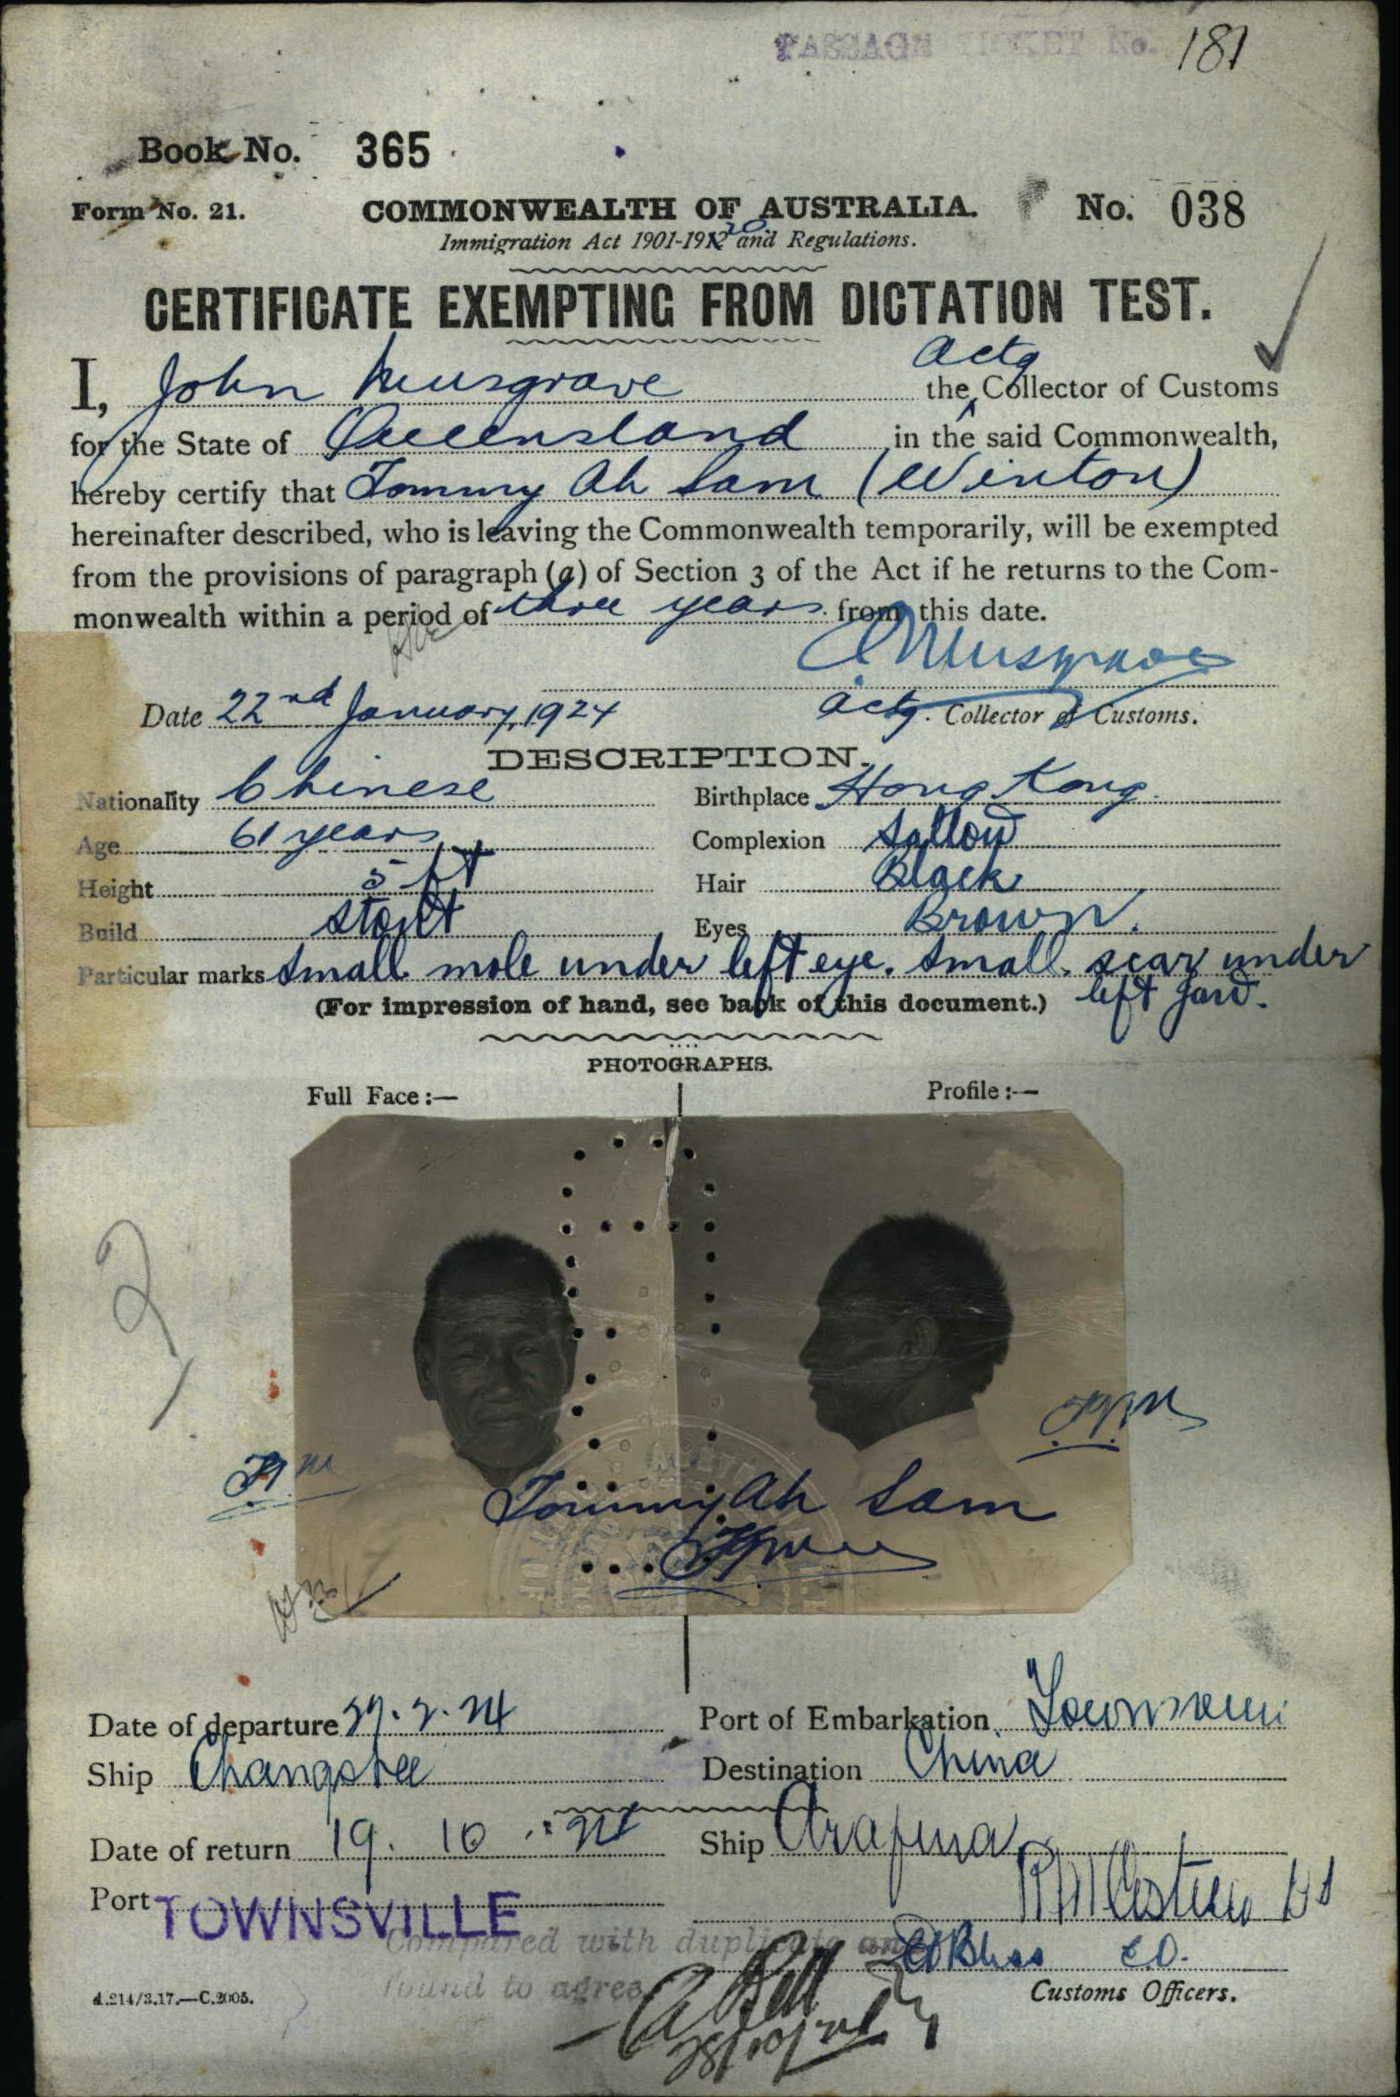 PASSAGE TICKET No. 181
Book No. 365
Form No. 21. COMMONWEALTH OF AUSTRALIA. No. 038
Immigration Act 1901-1920 and Regulations.
CERTIFICATE EXEMPTING FROM DICTATION TEST.
I, John Musgrave the Actg Collector of Customs
for the State of Queensland in the said Commonwealth,
hereby certify that Tommy Ah Sam (Winton)
hereinafter described, who is leaving the Commonwealth temporarily, will be exempted
from the provisions of paragraph (a) of Section 3 of the Act if he returns to the Com-
monwealth within a period of three years from this date.
Musgrave
Date 22nd January, 1924 Actg. Collector of Customs.
DESCRIPTION.
Nationality Chinese Birthplace Hong Kong
Age 61 years Complexion Sallow
Height 5 ft Hair Black
Build Stout Eyes Brown.
Particular marks Small mole under left eye. Small scar under
left jaw.
(For impression of hand, see back of this document.)
PHOTOGRAPHS.
Full Face :— Profile :—
2
Tommy Ah Sam
Date of departure 27.2.24 Port of Embarkation Townsville
Ship Changsha Destination China
Date of return 19. 10. 24 Ship Arafura
Port TOWNSVILLE
Compared with duplicate and
found to agree
Customs Officers.
A Bell
28/10/24